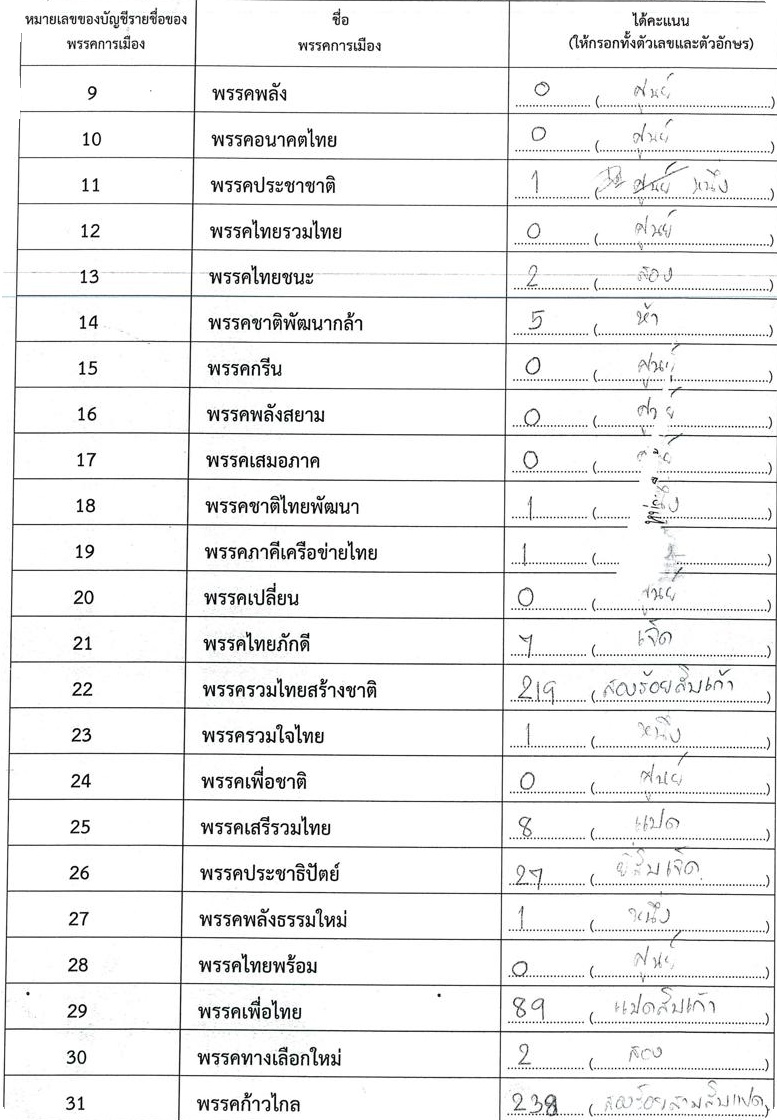 หมายเลขของบัญชีรายชื่อของ ชื่อ ได้คะแนน
พรรคการเมือง พรรคการเมือง (ให้กรอกทั้งตัวเลขและตัวอักษร)
9 พรรคพลัง 0 (ศูนย์)
10 พรรคอนาคตไทย 0 (ศูนย์)
11 พรรคประชาชาติ 1 (ศูนย์ หนึ่ง)
12 พรรคไทยรวมไทย 0 (ศูนย์)
13 พรรคไทยชนะ 2 (สอง)
14 พรรคชาติพัฒนากล้า 5 (ห้า)
15 พรรคกรีน 0 (ศูนย์)
16 พรรคพลังสยาม 0 (ศูนย์)
17 พรรคเสมอภาค 0 ( )
18 พรรคชาติไทยพัฒนา 1 ( )
19 พรรคภาคีเครือข่ายไทย 1 ( )
20 พรรคเปลี่ยน 0 (ศูนย์)
21 พรรคไทยภักดี 7 (เจ็ด)
22 พรรครวมไทยสร้างชาติ 219 (สองร้อยสิบเก้า)
23 พรรครวมใจไทย 1 (หนึ่ง)
24 พรรคเพื่อชาติ 0 (ศูนย์)
25 พรรคเสรีรวมไทย 8 (แปด)
26 พรรคประชาธิปัตย์ 27 (ยี่สิบเจ็ด)
27 พรรคพลังธรรมใหม่ 1 (หนึ่ง)
28 พรรคไทยพร้อม 0 (ศูนย์)
29 พรรคเพื่อไทย 89 (แปดสิบเก้า)
30 พรรคทางเลือกใหม่ 2 (สอง)
31 พรรคก้าวไกล 238 (สองร้อยสามสิบแปด)